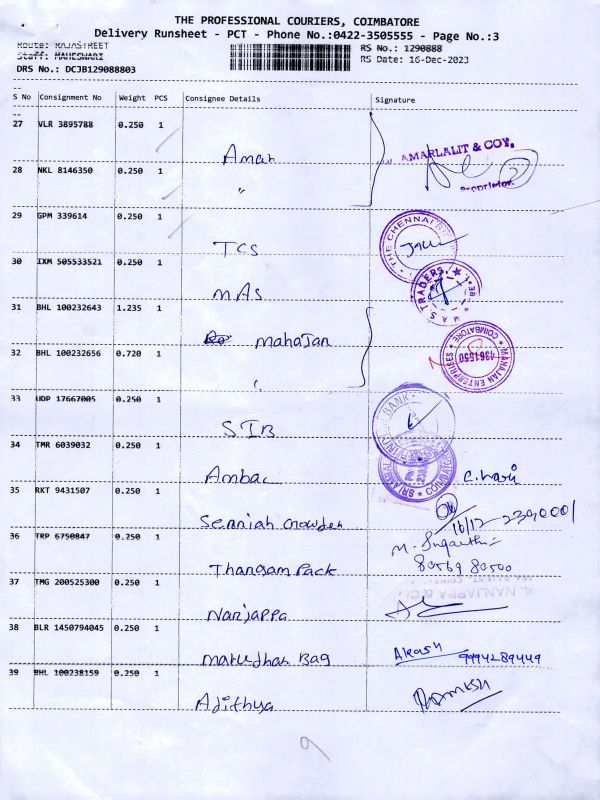 THE PROFESSIONAL COURIERS, COIMBATORE
Delivery Runsheet - PCT - Phone No.:0422-3505555 - Page No.:3
Route: RAJASTREET RS No.: 1290888
Staff: MAHESWARI RS Date: 16-Dec-2023
DRS No.: DCJB129088803
S No Consignment No Weight PCS Consignee Details Signature
27 VLR 3895788 0.250 1 Aman AMARLALIT & COY.
28 NKL 8146350 0.250 1 " Proprietor
29 GPM 339614 0.250 1 TCS THE CHENNAI
30 IXM 505533521 0.250 1 MAS M A S TRADERS
31 BHL 100232643 1.235 1 Mahajan
32 BHL 100232656 0.720 1 " MAHAJAN ENTERPRISES COIMBATORE 4361550
33 UDP 17667005 0.250 1 SIB BANK
34 TMR 6039032 0.250 1 Ambal SRI AMBAL
35 RKT 9431507 0.250 1 16/12
36 TRP 6750847 0.250 1 Thangam Pack 80569 80500
37 TMG 200525300 0.250 1 Nanjappa A. NANJAPPA & CO
38 BLR 1450794045 0.250 1 Marudhar Bag Akash 9994289449
39 BHL 100238159 0.250 1 Adithya
9